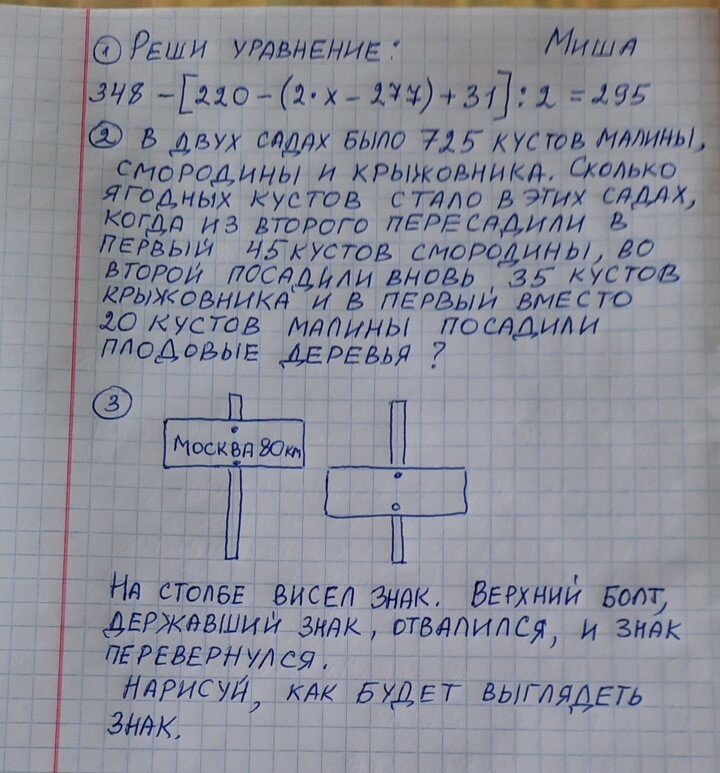 ① Реши уравнение: Миша
348 - [220 - (2·x - 277) + 31] : 2 = 295
② В двух садах было 725 кустов малины,
смородины и крыжовника. Сколько
ягодных кустов стало в этих садах,
когда из второго пересадили в
первый 45 кустов смородины, во
второй посадили вновь 35 кустов
крыжовника и в первый вместо
20 кустов малины посадили
плодовые деревья?
③
Москва 80 км
На столбе висел знак. Верхний болт,
державший знак, отвалился, и знак
перевернулся.
Нарисуй, как будет выглядеть
знак.